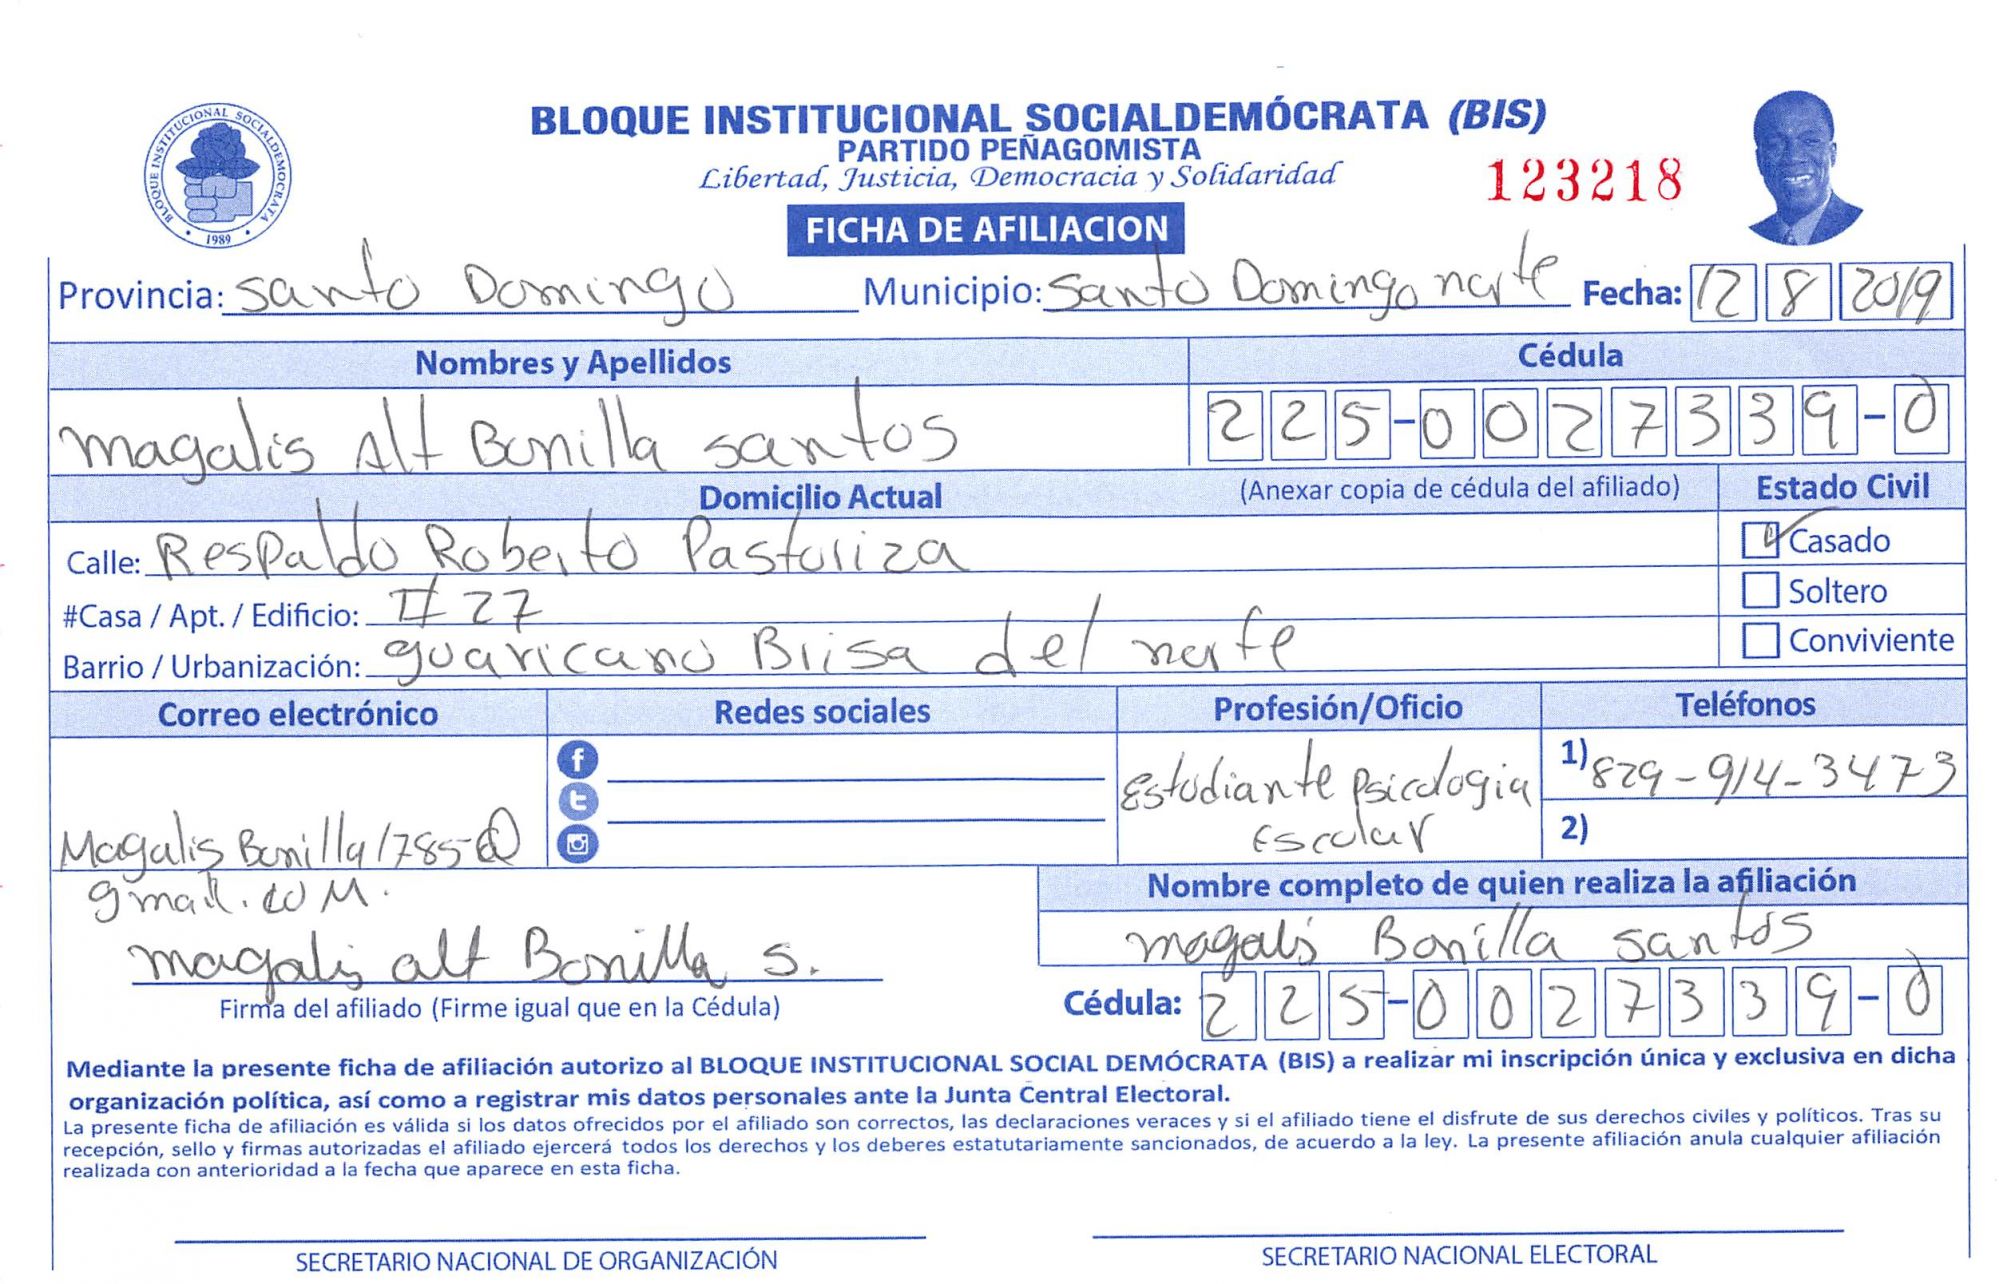 BLOQUE INSTITUCIONAL SOCIALDEMÓCRATA
1989
BLOQUE INSTITUCIONAL SOCIALDEMÓCRATA (BIS)
PARTIDO PEÑAGOMISTA
Libertad, Justicia, Democracia y Solidaridad
123218
FICHA DE AFILIACION
Provincia: Santo Domingo Municipio: Santo Domingo norte Fecha: 12 8 2019
Nombres y Apellidos Cédula
magalis Alt Bonilla santos 225-0027339-0
Domicilio Actual (Anexar copia de cédula del afiliado) Estado Civil
Calle: Respaldo Roberto Pastoriza Casado
#Casa / Apt. / Edificio: # 27 Soltero
Barrio / Urbanización: guaricano Brisa del norte Conviviente
Correo electrónico Redes sociales Profesión/Oficio Teléfonos
Estudiante Psicologia 1) 829-914-3473
Magalis Bonilla1785@ Escolar 2)
gmail.com.
Nombre completo de quien realiza la afiliación
magalis alt Bonilla s. magalis Bonilla santos
Firma del afiliado (Firme igual que en la Cédula) Cédula: 225-0027339-0
Mediante la presente ficha de afiliación autorizo al BLOQUE INSTITUCIONAL SOCIAL DEMÓCRATA (BIS) a realizar mi inscripción única y exclusiva en dicha
organización política, así como a registrar mis datos personales ante la Junta Central Electoral.
La presente ficha de afiliación es válida si los datos ofrecidos por el afiliado son correctos, las declaraciones veraces y si el afiliado tiene el disfrute de sus derechos civiles y políticos. Tras su
recepción, sello y firmas autorizadas el afiliado ejercerá todos los derechos y los deberes estatutariamente sancionados, de acuerdo a la ley. La presente afiliación anula cualquier afiliación
realizada con anterioridad a la fecha que aparece en esta ficha.
SECRETARIO NACIONAL DE ORGANIZACIÓN SECRETARIO NACIONAL ELECTORAL